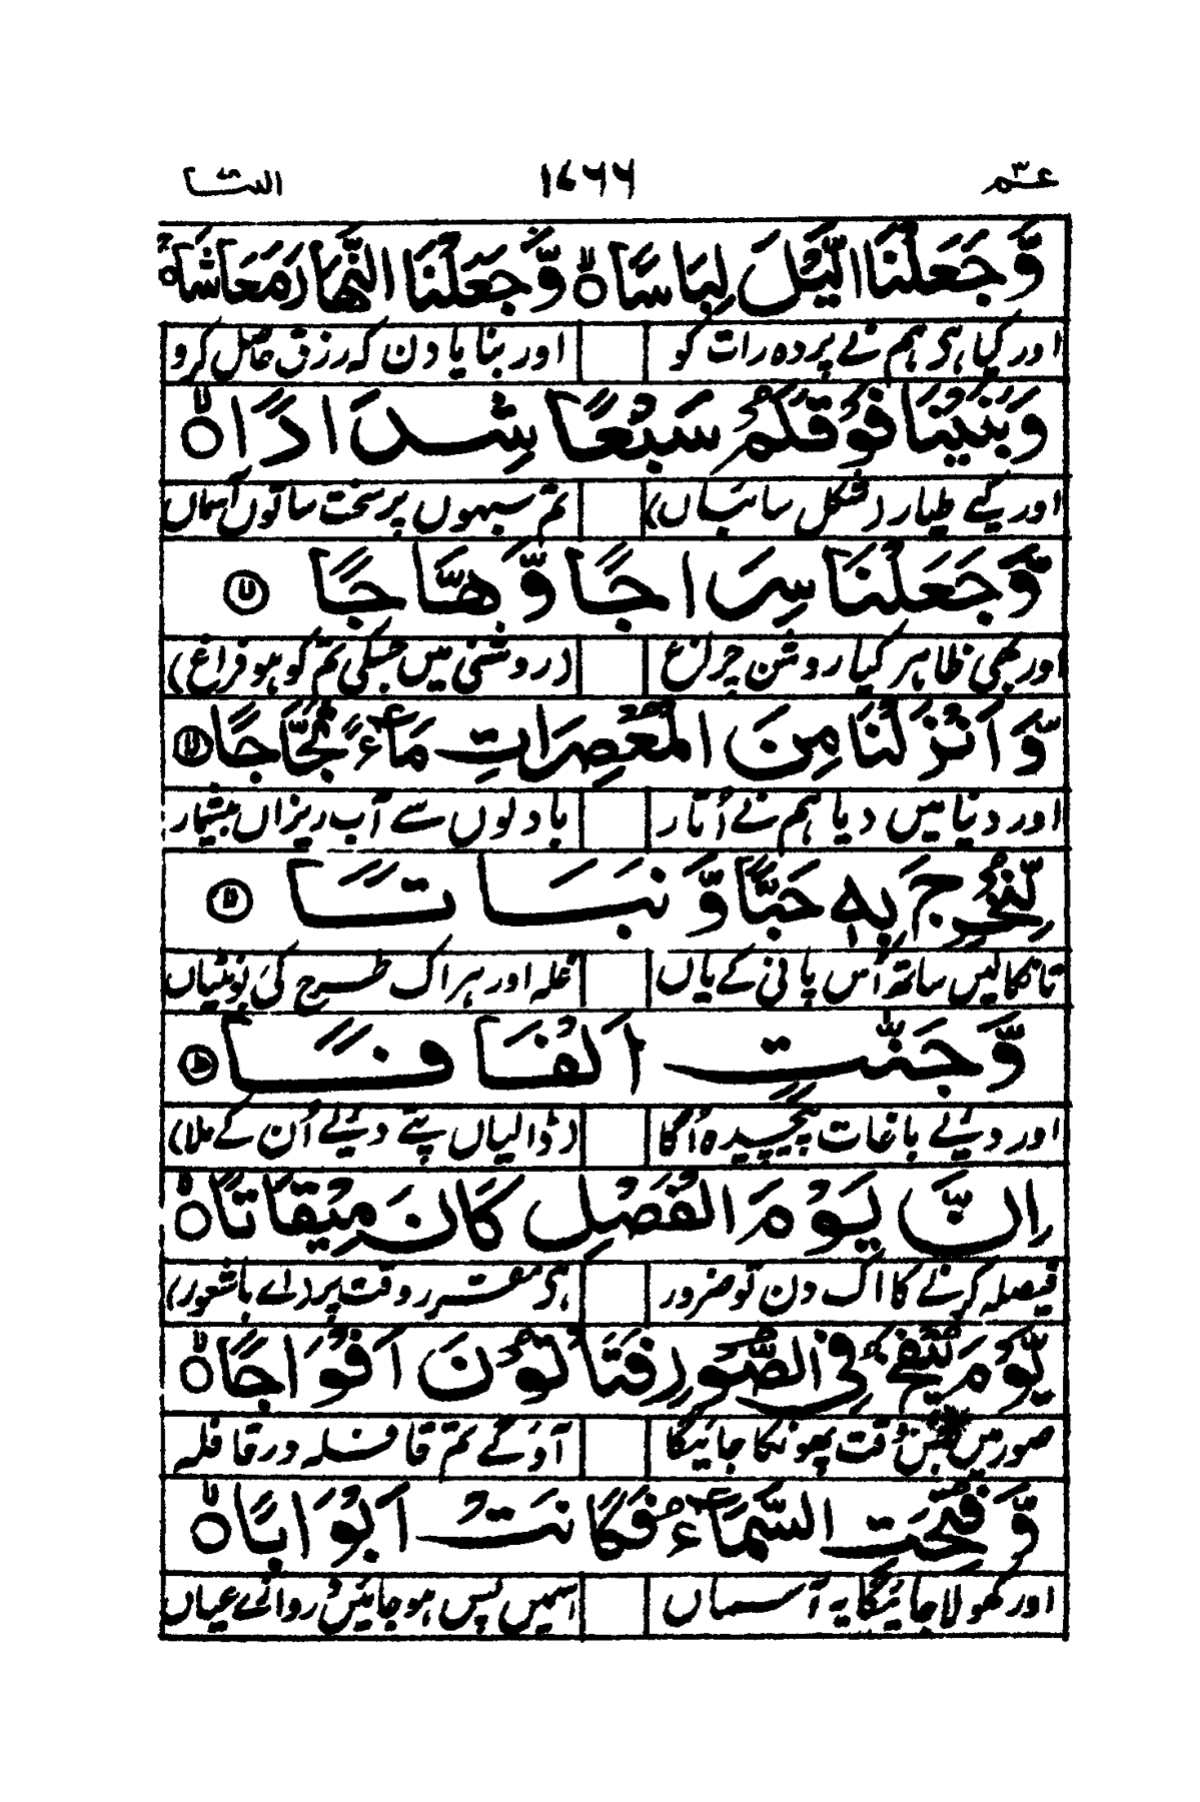 عم ۳۰ ۱۷۶۶ النبا
وَّجَعَلْنَا الَّيْلَ لِبَاسًا ۙ وَّجَعَلْنَا النَّهَارَ مَعَاشًا ۠
اور کیا ہی ہم نے پردہ رات کو اور بنایا دن کہ رزق حاصل کرو
وَبَنَيْنَا فَوْقَكُمْ سَبْعًا شِدَادًا ۙ
اور کیے طیار (شکل سائباں) تم سبہوں پر سخت ساتوں آسماں
وَّجَعَلْنَا سِرَاجًا وَّهَّاجًا
اور بھی ظاہر کیا روشن چراغ (روشنی میں جسکی تم کو ہو فراغ)
وَّاَنْزَلْنَا مِنَ الْمُعْصِرَاتِ مَآءً ثَجَّاجًا
اور دنیا میں دیا ہم نے اُتار بادلوں سے آب ریزاں بیشمار
لِّنُخْرِجَ بِهٖ حَبًّا وَّنَبَاتًا
تا نکالیں ساتھ اُس پانی کے یاں غلہ اور ہر اک طرح کی بوٹیاں
وَّجَنّٰتٍ اَلْفَافًا
اور دیئے باغات پیچیدہ اُگا (ڈالیاں پتے دیئے اُن کے ملا)
اِنَّ يَوْمَ الْفَصْلِ كَانَ مِيْقَاتًا ۙ
فیصلہ کرنے کا اک دن تو ضرور ہی مقرر وقت پر (اے باشعور)
يَّوْمَ يُنْفَخُ فِى الصُّوْرِ فَتَاْتُوْنَ اَفْوَاجًا ۙ
صور میں جس وقت پھونکا جائیگا آؤ گے تم قافلہ در قافلہ
وَّفُتِحَتِ السَّمَآءُ فَكَانَتْ اَبْوَابًا ۙ
اور کھولا جائیگا یہ آسماں اسمیں پس ہو جائیں دروازے عیاں